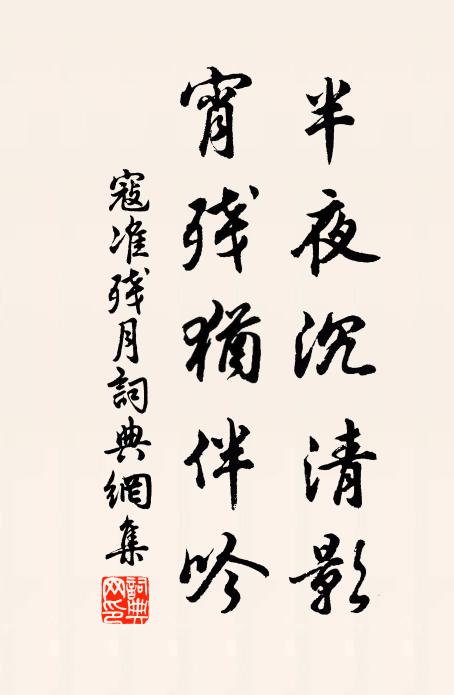 半夜沉清影
宵残猶伴吟
寇准残月詞典網集
詞典網印